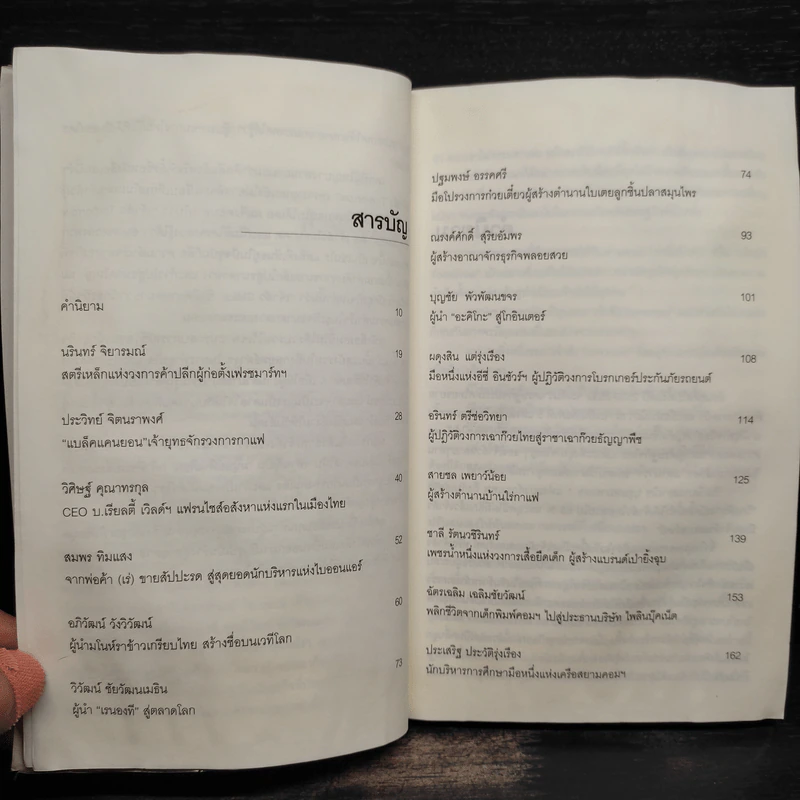 สารบัญ
คำนิยาม 10
นรินทร์ จิยารมณ์ 19
สตรีเหล็กแห่งวงการค้าปลีกผู้ก่อตั้งเฟรชมาร์ทฯ
ประวิทย์ จิตนราพงศ์ 28
"แบล็คแคนยอน"เจ้ายุทธจักรวงการกาแฟ
วิศิษฐ์ คุณาทรกุล 40
CEO บ.เรียลตี้ เวิลด์ฯ แฟรนไชส์อสังหาแห่งแรกในเมืองไทย
สมพร ทิมแสง 52
จากพ่อค้า (เร่) ขายสัปปะรด สู่สุดยอดนักบริหารแห่งไบออนแอร์
อภิวัฒน์ วังวิวัฒน์ 60
ผู้นำมโนห์ราข้าวเกรียบไทย สร้างชื่อบนเวทีโลก
วิวัฒน์ ชัยวัฒนเมธิน 73
ผู้นำ "เรนองที" สู่ตลาดโลก
ปฐมพงษ์ อรรคศรี 74
มือโปรวงการก๋วยเตี๋ยวผู้สร้างตำนานใบเตยลูกชิ้นปลาสมุนไพร
ณรงค์ศักดิ์ สุริยอัมพร 93
ผู้สร้างอาณาจักรธุรกิจพลอยสวย
บุญชัย พัวพัฒนขจร 101
ผู้นำ "อะคิโกะ" สู่โกอินเตอร์
ผดุงสิน แต่รุ่งเรือง 108
มือหนึ่งแห่งอีซี่ อินชัวร์ฯ ผู้ปฏิวัติวงการโบรกเกอร์ประกันภัยรถยนต์
อรินทร์ ตรีช่อวิทยา 114
ผู้ปฏิวัติวงการเฉาก๊วยไทยสู่ราชาเฉาก๊วยธัญญาพืช
สายชล เพยาว์น้อย 125
ผู้สร้างตำนานบ้านไร่กาแฟ
ชาลี รัตนวชิรินทร์ 139
เพชรน้ำหนึ่งแห่งวงการเสื้อยืดเด็ก ผู้สร้างแบรนด์เป่ายิ้งฉุบ
ฉัตรเฉลิม เฉลิมชัยวัฒน์ 153
พลิกชีวิตจากเด็กพิมพ์คอมฯ ไปสู่ประธานบริษัท ไพลินบุ๊คเน็ต
ประเสริฐ ประวัติรุ่งเรือง 162
นักบริหารการศึกษามือหนึ่งแห่งเครือสยามคอมฯ